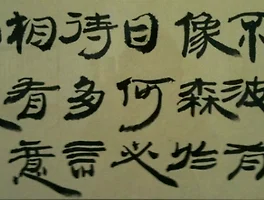 不波有
像森於
目何必
待多言
相看意